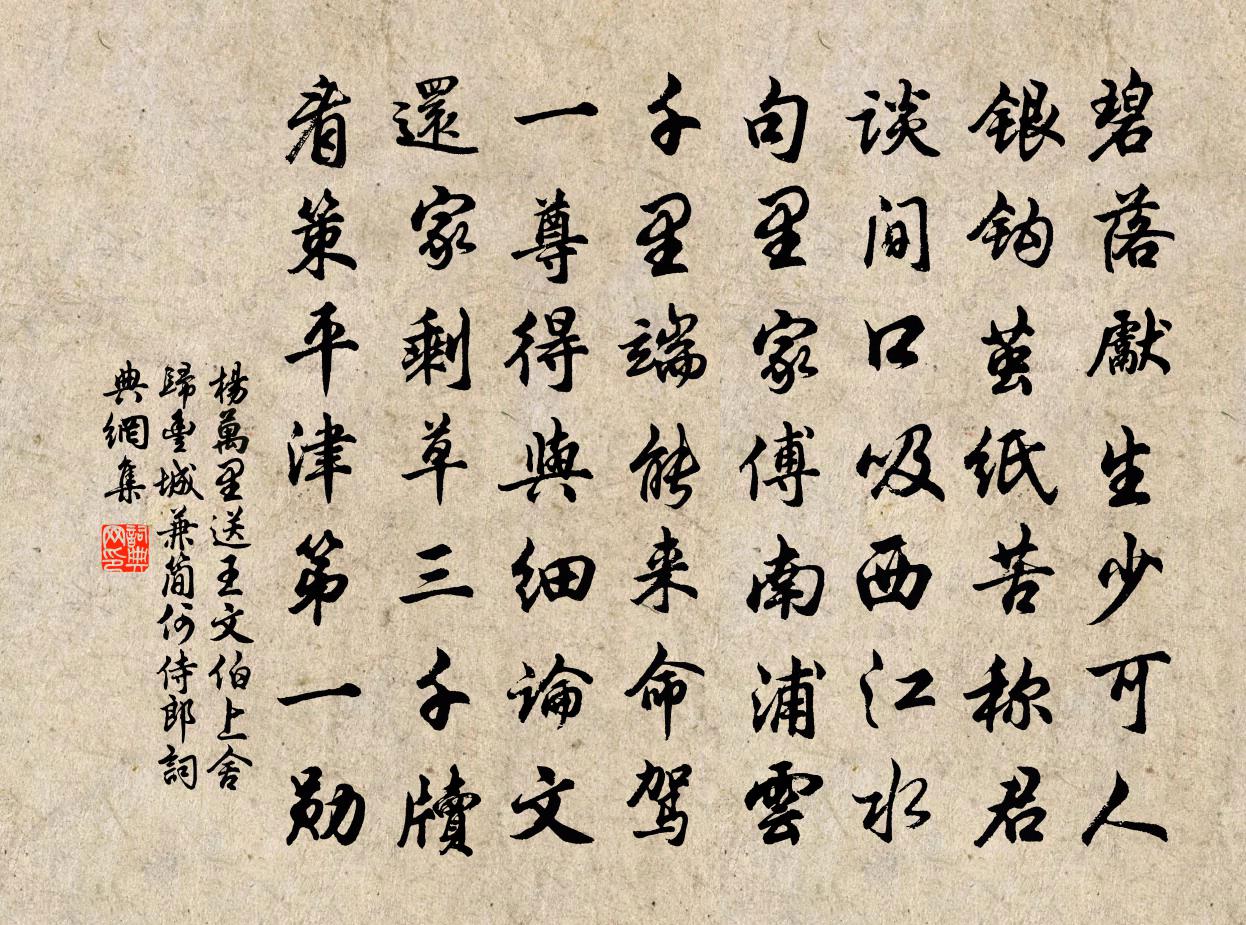 碧落獻生少可人
銀鈎茧紙苦称君
談間口吸西江水
句里家傅南浦雲
千里端能来命駕
一尊得與细論文
還家剩草三千牘
看策平津第一勛
楊萬里送王文伯上舍
歸豊城兼简何侍郎詞
典網集
詞典网印